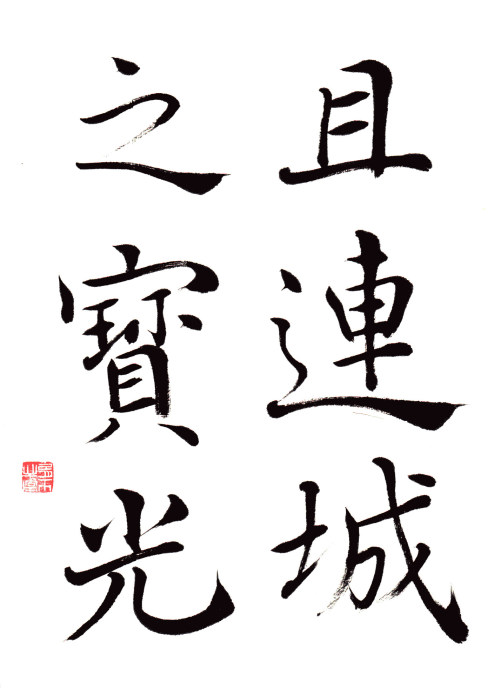 且連城
之寳光